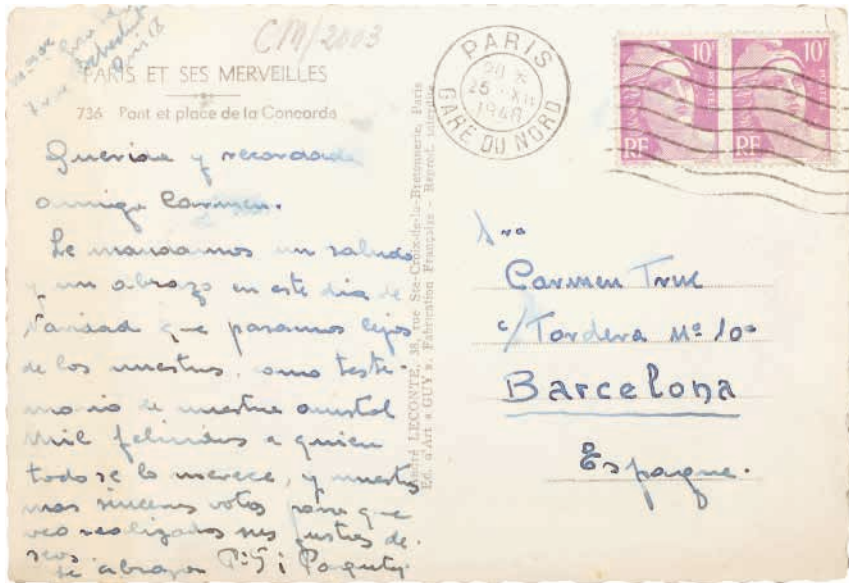 CM/2003
PARIS ET SES MERVEILLES
736 Pont et place de la Concorde
Querida y recordada
amiga Carmen.
Le mandamos un saludo
y un abrazo en este dia de
Navidad que pasamos lejos
de los nuestros, como testi-
monio de nuestra amistad
Mil felicidades a quien
todo se lo merece, y nuestros
mas sinceros votos para que
vea realizados sus justos de-
seos
Le abrazan P. G i Paquita
André LECONTE, 38, rue Ste-Croix-de-la-Bretonnerie, Paris
Ed. d'Art « GUY ». Fabrication Française - Reprod. interdite
PARIS
25 XII
1948
GARE DU NORD
10F
10F
RF
RF
Sra
Carmen Truc
c/ Tordera Nº 10
Barcelona
Espagne.